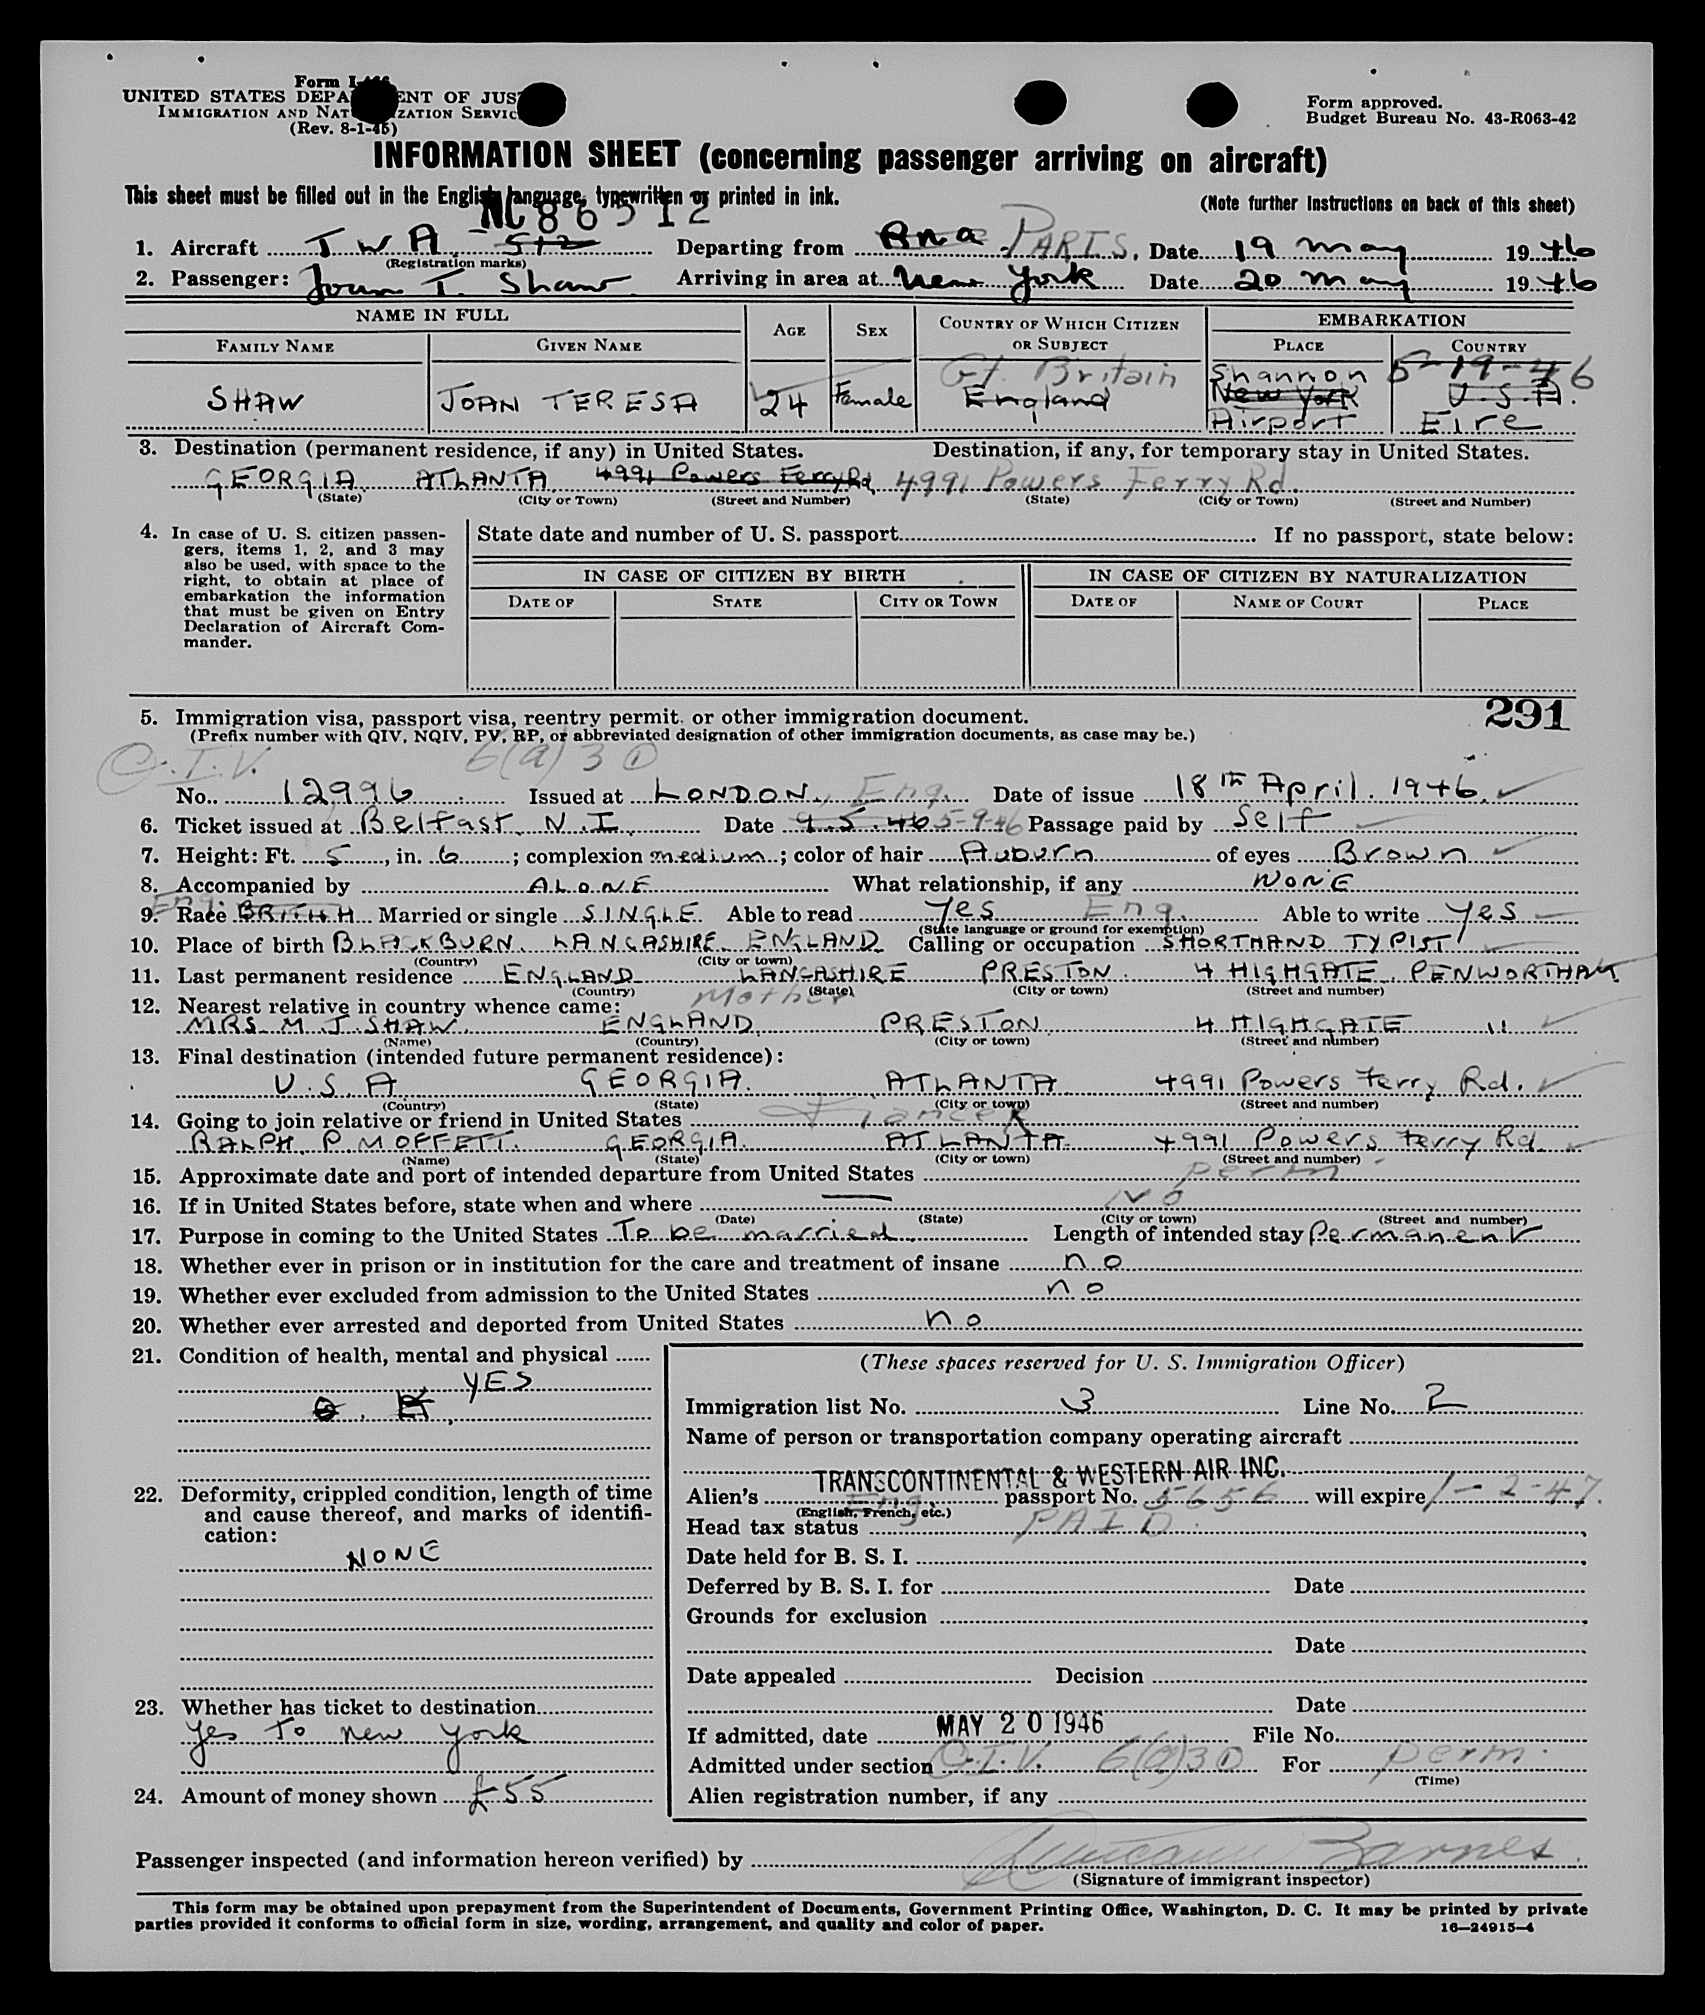 Form I-466
UNITED STATES DEPARTMENT OF JUSTICE
IMMIGRATION AND NATURALIZATION SERVICE
(Rev. 8-1-45)
Form approved.
Budget Bureau No. 43-R063-42
INFORMATION SHEET (concerning passenger arriving on aircraft)
This sheet must be filled out in the English language, typewritten or printed in ink.
(Note further instructions on back of this sheet)
NC 86512
1. Aircraft T W A - 512 Departing from PARIS, Date 19 May 1946
(Registration marks)
2. Passenger: Joan T. Shaw Arriving in area at New York Date 20 May 1946
NAME IN FULL AGE SEX COUNTRY OF WHICH CITIZEN OR SUBJECT EMBARKATION
FAMILY NAME GIVEN NAME PLACE COUNTRY
Gt. Britain Shannon 5-19-46
SHAW JOAN TERESA 24 Female England New York U.S.A.
Airport Eire
3. Destination (permanent residence, if any) in United States. Destination, if any, for temporary stay in United States.
GEORGIA ATLANTA 4991 Powers Ferry Rd 4991 Powers Ferry Rd.
(State) (City or Town) (Street and Number) (State) (City or Town) (Street and Number)
4. In case of U. S. citizen passengers, items 1, 2, and 3 may also be used, with space to the right, to obtain at place of embarkation the information that must be given on Entry Declaration of Aircraft Commander.
State date and number of U. S. passport If no passport, state below:
IN CASE OF CITIZEN BY BIRTH IN CASE OF CITIZEN BY NATURALIZATION
DATE OF STATE CITY OR TOWN DATE OF NAME OF COURT PLACE
291
5. Immigration visa, passport visa, reentry permit, or other immigration document.
(Prefix number with QIV, NQIV, PV, RP, or abbreviated designation of other immigration documents, as case may be.)
Q.I.V. 6(a)3 ①
No. 12996 Issued at LONDON, Eng. Date of issue 18th April. 1946.
6. Ticket issued at Belfast, N.I. Date 9.5.46 5-9-46 Passage paid by Self
7. Height: Ft. 5, in. 6; complexion medium; color of hair Auburn of eyes Brown
8. Accompanied by ALONE What relationship, if any NONE
Eng.
9. Race Married or single SINGLE Able to read Yes Eng. Able to write Yes
(State language or ground for exemption)
10. Place of birth BLACKBURN, LANCASHIRE, ENGLAND Calling or occupation SHORTHAND TYPIST
(Country) (City or town)
11. Last permanent residence ENGLAND LANCASHIRE PRESTON 4 HIGHGATE, PENWORTHAM
(Country) (State) (City or town) (Street and number)
12. Nearest relative in country whence came: Mother
MRS M J. SHAW ENGLAND PRESTON 4 HIGHGATE "
(Name) (Country) (City or town) (Street and number)
13. Final destination (intended future permanent residence):
U.S.A. GEORGIA. ATLANTA 4991 Powers Ferry Rd.
(Country) (State) (City or town) (Street and number)
14. Going to join relative or friend in United States Fiance
RALPH P. MOFFETT. GEORGIA ATLANTA. 4991 Powers Ferry Rd
(Name) (State) (City or town) (Street and number)
15. Approximate date and port of intended departure from United States perm
16. If in United States before, state when and where — No
(Date) (State) (City or town) (Street and number)
17. Purpose in coming to the United States To be married Length of intended stay Permanent
18. Whether ever in prison or in institution for the care and treatment of insane no
19. Whether ever excluded from admission to the United States no
20. Whether ever arrested and deported from United States no
21. Condition of health, mental and physical
YES
(These spaces reserved for U. S. Immigration Officer)
Immigration list No. 3 Line No. 2
Name of person or transportation company operating aircraft
TRANSCONTINENTAL & WESTERN AIR INC.
22. Deformity, crippled condition, length of time and cause thereof, and marks of identification:
NONE
Alien's Eng. passport No. 5656 will expire 1-2-47.
(English, French, etc.)
Head tax status PAID.
Date held for B. S. I.
Deferred by B. S. I. for Date
Grounds for exclusion
Date
Date appealed Decision
Date
23. Whether has ticket to destination
Yes To New York
If admitted, date MAY 20 1946 File No.
Admitted under section Q.I.V. 6(a)3 ① For perm.
(Time)
24. Amount of money shown £55
Alien registration number, if any
Passenger inspected (and information hereon verified) by Barnes
(Signature of immigrant inspector)
This form may be obtained upon prepayment from the Superintendent of Documents, Government Printing Office, Washington, D. C. It may be printed by private
parties provided it conforms to official form in size, wording, arrangement, and quality and color of paper. 16—24915-4